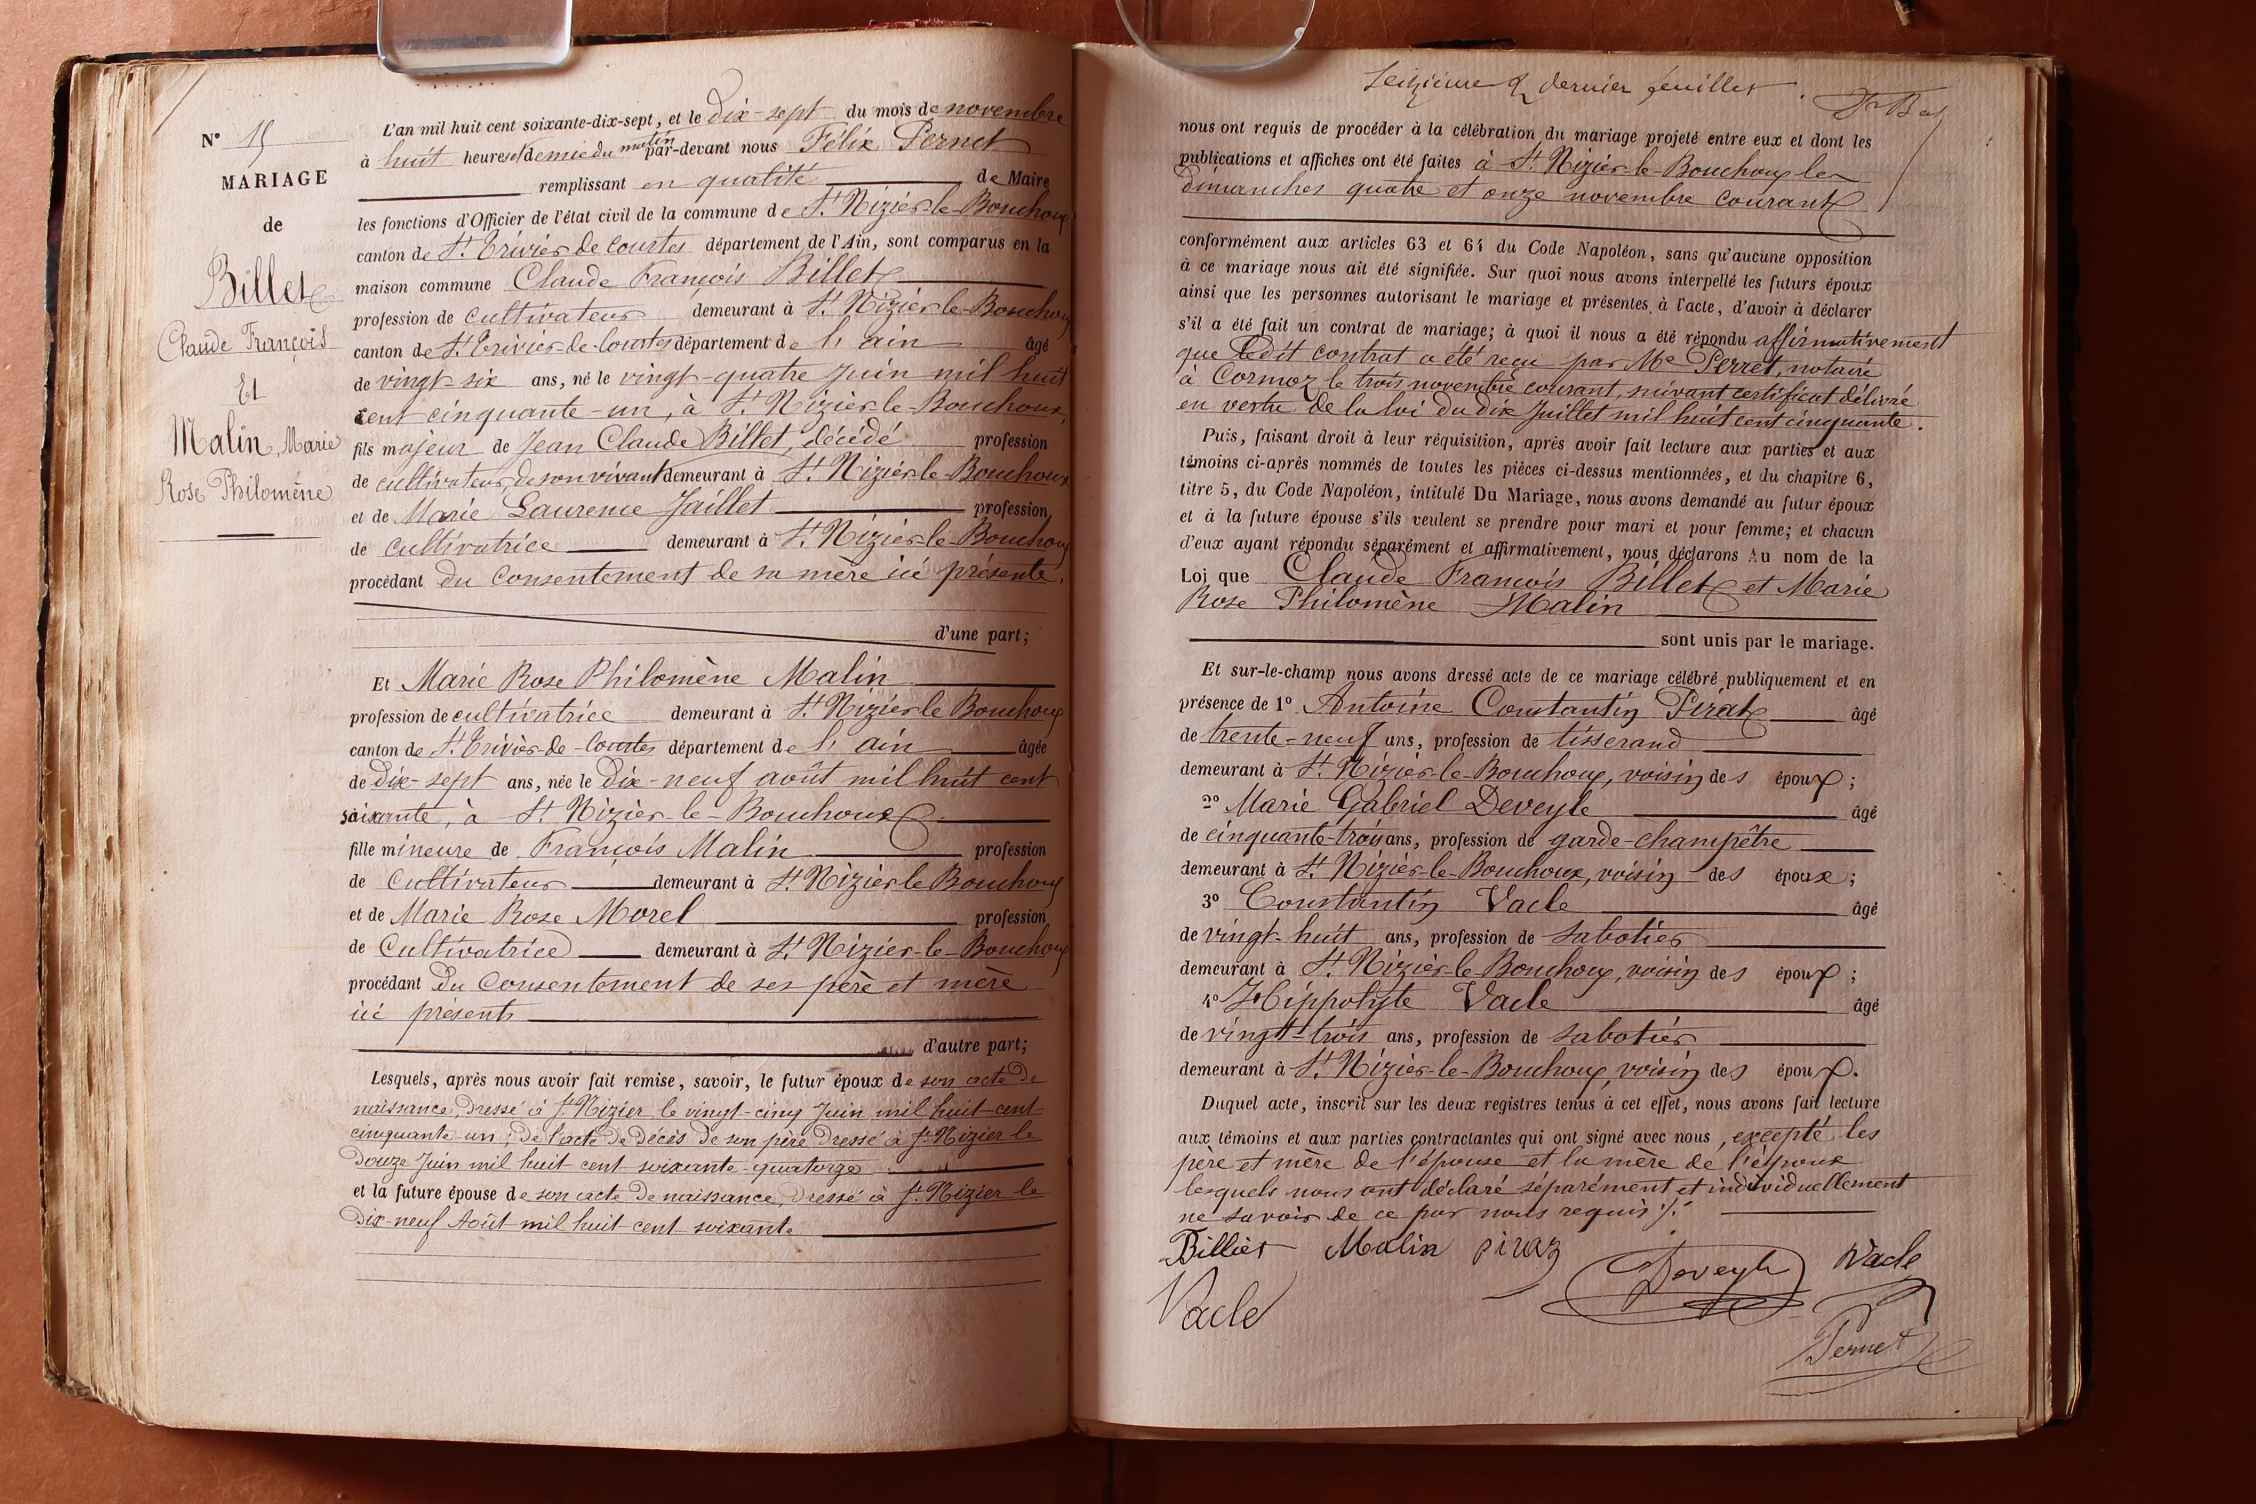 N° 15
MARIAGE
de
Billet
Claude François
Et
Malin, Marie
Rose Philomène
L'an mil huit cent soixante-dix-sept, et le dix-sept du mois de novembre
à huit heures et demie du matin par-devant nous Félix Pernet
remplissant en qualité de Maire
les fonctions d'Officier de l'état civil de la commune de St Nizier-le-Bouchoux
canton de St Trivier de Courtes département de l'Ain, sont comparus en la
maison commune Claude François Billet
profession de cultivateur demeurant à St Nizier-le-Bouchoux
canton de St Trivier-de-Courtes département de l'ain âgé
de vingt-six ans, né le vingt-quatre Juin mil huit
cent cinquante-un, à St Nizier-le-Bouchoux,
fils majeur de Jean Claude Billet, décédé profession
de cultivateur, de son vivant demeurant à St Nizier-le-Bouchoux
et de Marie Laurence Jaillet profession
de cultivatrice demeurant à St Nizier-le-Bouchoux
procédant du consentement de sa mère ici présente.
d'une part;
Et Marie Rose Philomène Malin
profession de cultivatrice demeurant à St Nizier le Bouchoux
canton de St Trivier-de-Courtes département de l'ain âgée
de dix-sept ans, née le dix-neuf août mil huit cent
soixante, à St Nizier-le-Bouchoux
fille mineure de François Malin profession
de cultivateur demeurant à St Nizier le Bouchoux
et de Marie Rose Morel profession
de Cultivatrice demeurant à St Nizier-le-Bouchoux
procédant du consentement de ses père et mère
ici présents
d'autre part;
Lesquels, après nous avoir fait remise, savoir, le futur époux de son acte de
naissance, dressé à St Nizier le vingt-cinq Juin mil huit-cent-
cinquante-un; de l'acte de décès de son père dressé à St Nizier le
douze Juin mil huit cent soixante-quatorze
et la future épouse de son acte de naissance, dressé à St Nizier le
dix-neuf Août mil huit cent soixante
Seizième & dernier feuillet.
nous ont requis de procéder à la célébration du mariage projeté entre eux et dont les
publications et affiches ont été faites à St Nizier-le-Bouchoux les
dimanches quatre et onze novembre courant
conformément aux articles 63 et 64 du Code Napoléon, sans qu'aucune opposition
à ce mariage nous ait été signifiée. Sur quoi nous avons interpellé les futurs époux
ainsi que les personnes autorisant le mariage et présentes à l'acte, d'avoir à déclarer
s'il a été fait un contrat de mariage; à quoi il nous a été répondu affirmativement
que ledit contrat a été reçu par Me Perret, notaire
à Cormoz le trois novembre courant, suivant certificat délivré
en vertu de la loi du dix Juillet mil huit cent cinquante.
Puis, faisant droit à leur réquisition, après avoir fait lecture aux parties et aux
témoins ci-après nommés de toutes les pièces ci-dessus mentionnées, et du chapitre 6,
titre 5, du Code Napoléon, intitulé Du Mariage, nous avons demandé au futur époux
et à la future épouse s'ils veulent se prendre pour mari et pour femme; et chacun
d'eux ayant répondu séparément et affirmativement, nous déclarons Au nom de la
Loi que Claude François Billet et Marie
Rose Philomène Malin
sont unis par le mariage.
Et sur-le-champ nous avons dressé acte de ce mariage célébré publiquement et en
présence de 1° Antoine Constantin Pirat âgé
de trente-neuf ans, profession de tisserand
demeurant à St Nizier-le-Bouchoux, voisin des époux;
2° Marie Gabriel Deveyle âgé
de cinquante-trois ans, profession de garde-champêtre
demeurant à St Nizier-le-Bouchoux, voisin des époux;
3° Constantin Vacle âgé
de vingt-huit ans, profession de sabotier
demeurant à St Nizier-le-Bouchoux, voisin des époux;
4° Hippolyte Vacle âgé
de vingt-trois ans, profession de sabotier
demeurant à St Nizier-le-Bouchoux, voisin des époux.
Duquel acte, inscrit sur les deux registres tenus à cet effet, nous avons fait lecture
aux témoins et aux parties contractantes qui ont signé avec nous, excepté les
père et mère de l'épouse et la mère de l'époux
lesquels nous ont déclaré séparément et individuellement
ne savoir de ce par nous requis ./.
Billiet Malin piraz Deveyle Vacle
Vacle
Pernet